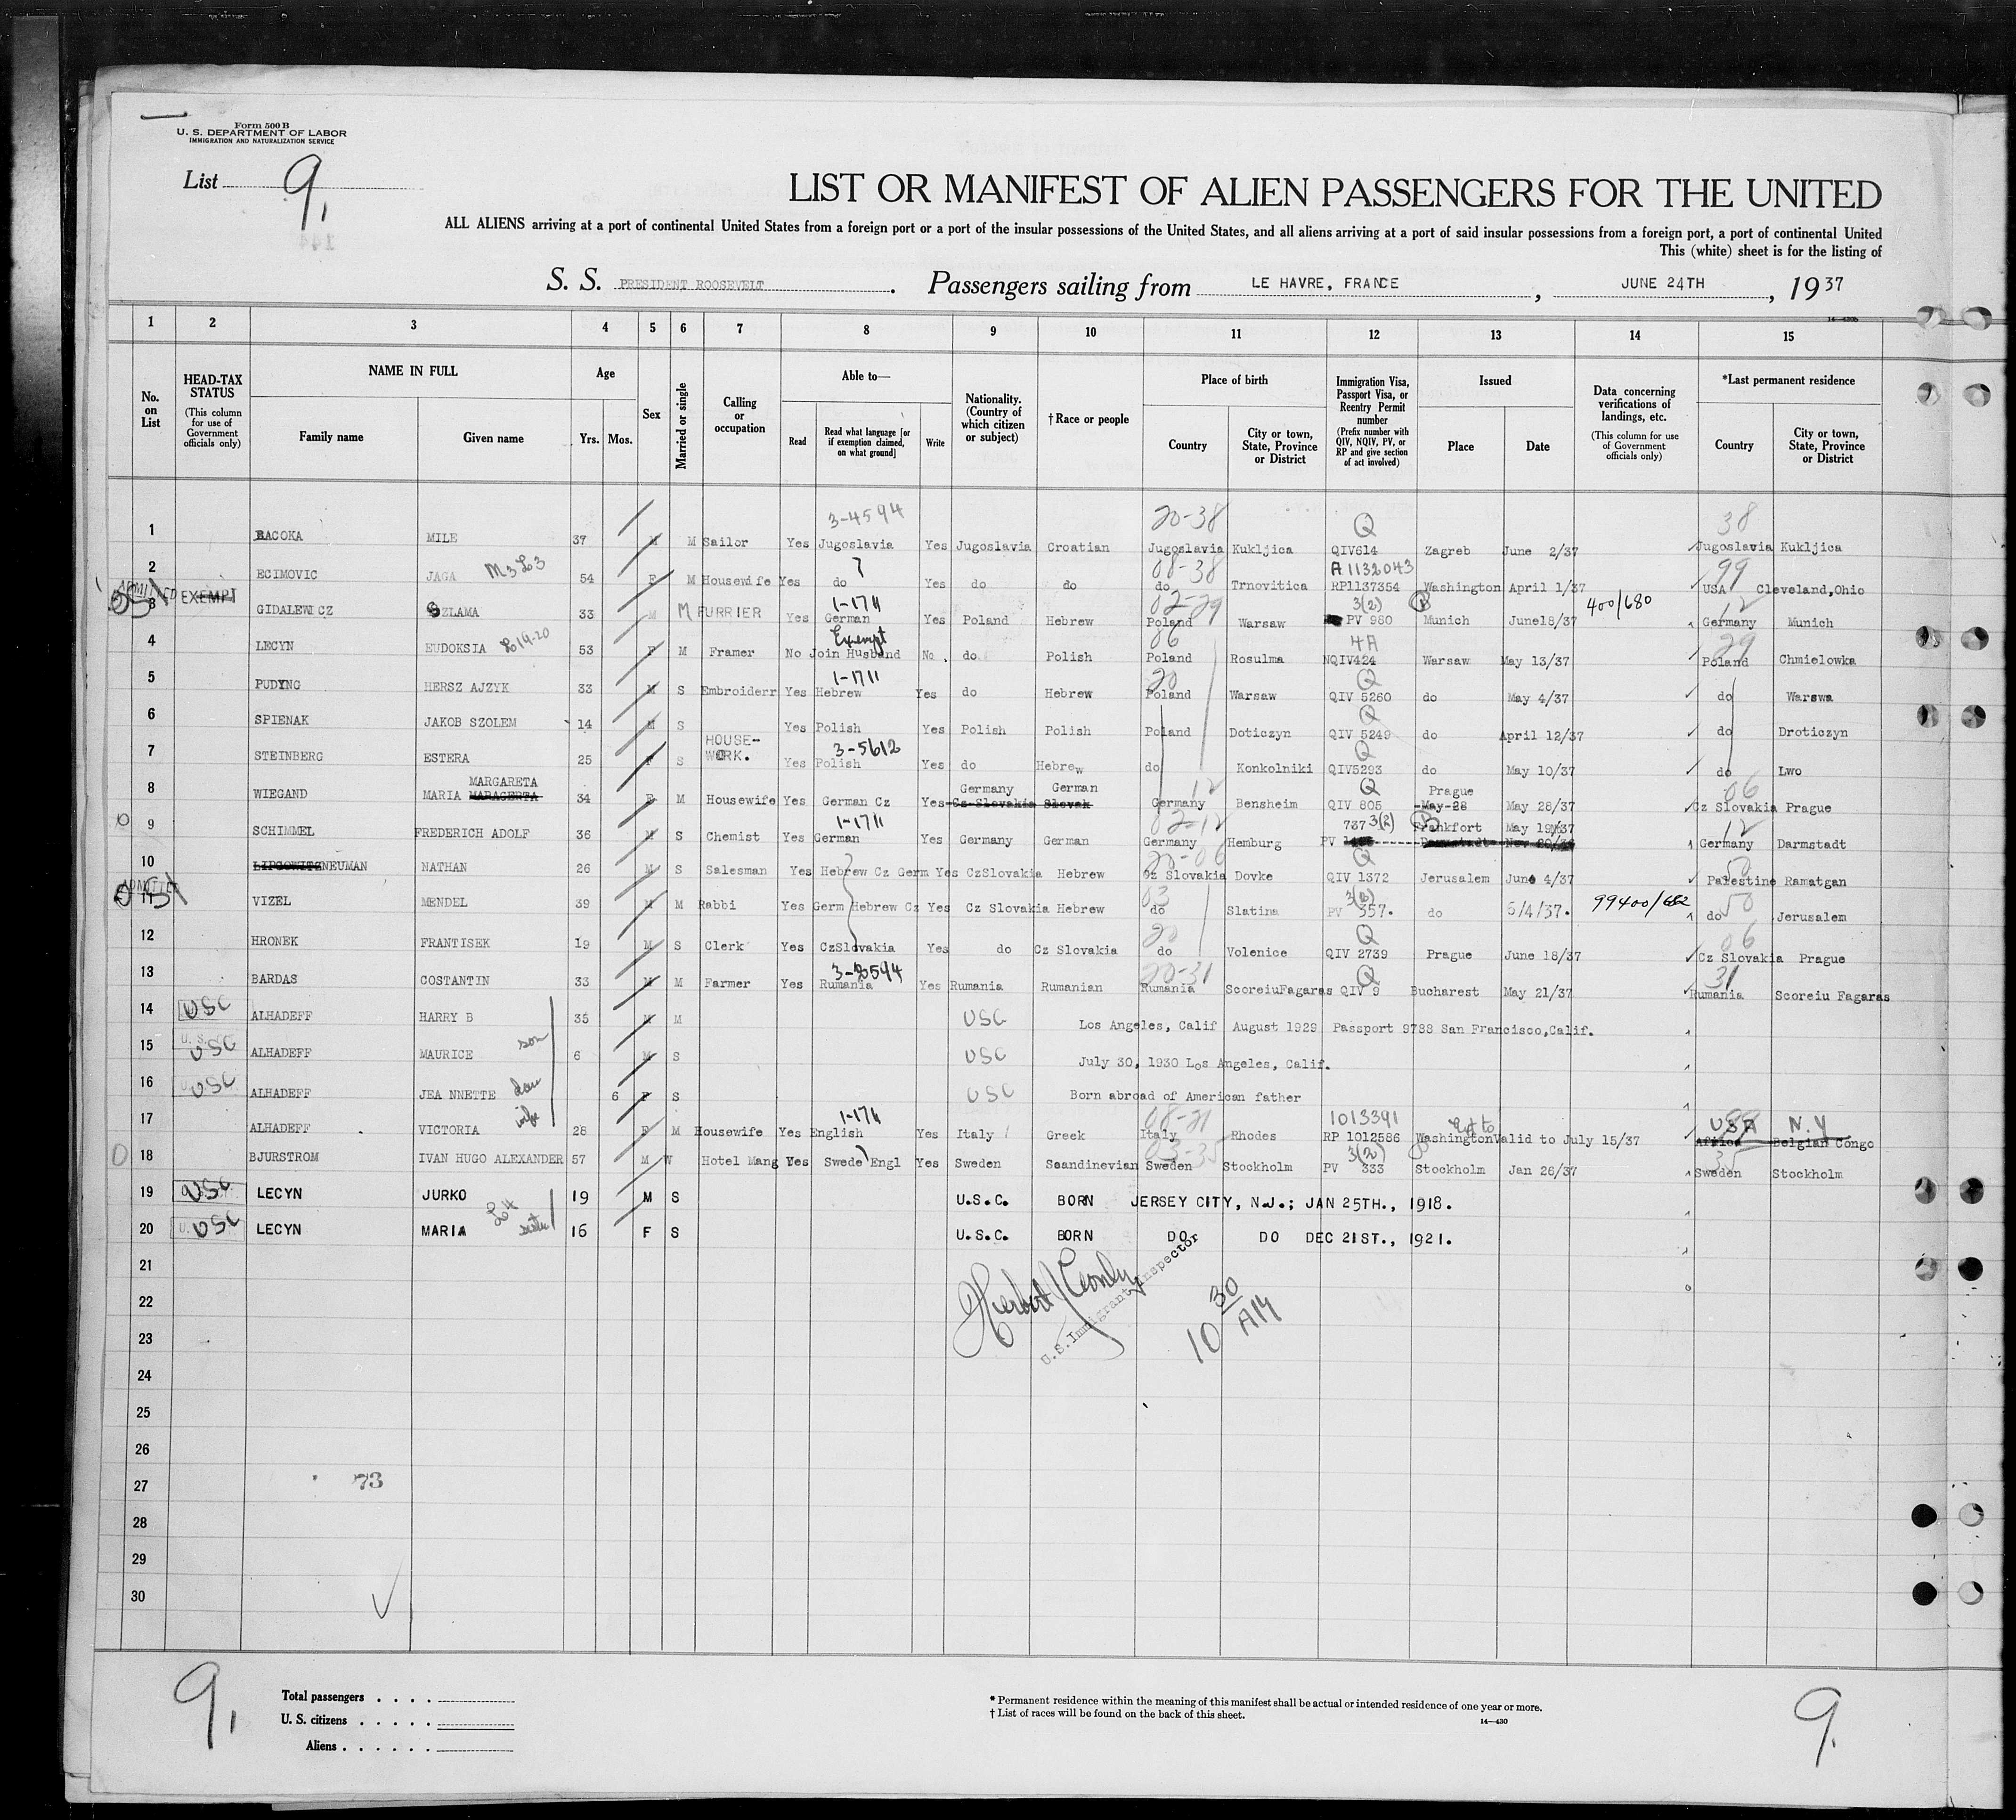 Form 500 B
U. S. DEPARTMENT OF LABOR
IMMIGRATION AND NATURALIZATION SERVICE
List 9,
LIST OR MANIFEST OF ALIEN PASSENGERS FOR THE UNITED
ALL ALIENS arriving at a port of continental United States from a foreign port or a port of the insular possessions of the United States, and all aliens arriving at a port of said insular possessions from a foreign port, a port of continental United
This (white) sheet is for the listing of
S. S. PRESIDENT ROOSEVELT. Passengers sailing from LE HAVRE, FRANCE, JUNE 24TH, 1937
1 2 3 4 5 6 7 8 9 10 11 12 13 14 15
No. on List
HEAD-TAX STATUS (This column for use of Government officials only)
NAME IN FULL Family name Given name
Age Yrs. Mos.
Sex
Married or single
Calling or occupation
Able to— Read Read what language [or if exemption claimed, on what ground] Write
Nationality. (Country of which citizen or subject)
†Race or people
Place of birth Country City or town, State, Province or District
Immigration Visa, Passport Visa, or Reentry Permit number (Prefix number with QIV, NQIV, PV, or RP and give section of act involved)
Issued Place Date
Data concerning verifications of landings, etc. (This column for use of Government officials only)
*Last permanent residence Country City or town, State, Province or District
3-4594 20-38 Q 38
1 BACOKA MILE 37 M M Sailor Yes Jugoslavia Yes Jugoslavia Croatian Jugoslavia Kukljica QIV614 Zagreb June 2/37 Jugoslavia Kukljica
M3 L3 08-38 A1132043 99
2 ECIMOVIC JAGA 54 F M Housewife Yes do Yes do do do Trnovitica RP1137354 Washington April 1/37 USA Cleveland,Ohio
ADMITTED EXEMPT 1-1711 02-29 3(2) 400/680 12
3 GIDALEWICZ SZLAMA 33 M M FURRIER Yes German Yes Poland Hebrew Poland Warsaw PV 980 Munich June18/37 Germany Munich
L19-20 Exempt 06 4A 29
4 LECYN EUDOKSIA 53 F M Framer No Join Husband No. do Polish Poland Rosulma NQIV424 Warsaw May 13/37 Poland Chmielowka
1-1711 20 Q
5 PUDYNG HERSZ AJZYK 33 M S Embroiderr Yes Hebrew Yes do Hebrew Poland Warsaw QIV 5260 do May 4/37 do Warswa
Q
6 SPIENAK JAKOB SZOLEM 14 M S Yes Polish Yes Polish Polish Poland Doticzyn QIV 5249 do April 12/37 do Droticzyn
3-5612 Q
7 STEINBERG ESTERA 25 F S HOUSE-WORK. Yes Polish Yes do Hebrew do Konkolniki QIV5293 do May 10/37 do Lwo
MARGARETA Germany German 12 Q Prague 06
8 WIEGAND MARIA MARAGERTA 34 F M Housewife Yes German Cz Yes Cz Slovakia Slovak Germany Bensheim QIV 805 May 28 May 28/37 Cz Slovakia Prague
1-1711 02-12 737 3(2) Frankfort May 19/37 12
9 SCHIMMEL FREDERICH ADOLF 36 M S Chemist Yes German Yes Germany German Germany Hemburg PV Germany Darmstadt
20-06 Q 50
10 LIPCOWITZ NEUMAN NATHAN 26 M S Salesman Yes Hebrew Cz Germ Yes CzSlovakia Hebrew Cz Slovakia Dovke QIV 1372 Jerusalem June 4/37 Palestine Ramatgan
ADMITTED 03 3(6) 99400/682 50
11 VIZEL MENDEL 39 M M Rabbi Yes Germ Hebrew Cz Yes Cz Slovakia Hebrew do Slatina PV 357. do 5/4/37. do Jerusalem
20 Q 06
12 HRONEK FRANTISEK 19 M S Clerk Yes CzSlovakia Yes do Cz Slovakia do Volenice QIV 2739 Prague June 18/37 Cz Slovakia Prague
20-31 Q 31
13 BARDAS COSTANTIN 33 M M Farmer Yes Rumania Yes Rumania Rumanian Rumania ScoreiuFagaras QIV 9 Bucharest May 21/37 Rumania Scoreiu Fagaras
14 USC ALHADEFF HARRY B 35 M M USC Los Angeles, Calif August 1929 Passport 9788 San Francisco,Calif.
15 USC ALHADEFF MAURICE son 6 M S USC July 30, 1930 Los Angeles, Calif.
16 USC ALHADEFF JEA NNETTE dau 6 F S USC Born abroad of American father
wife 08-21 1013391 USA N.Y
17 ALHADEFF VICTORIA 28 F M Housewife Yes English Yes Italy Greek Italy Rhodes RP 1012586 Washington Valid to July 15/37 Africa Belgian Congo
03-35 3(2) 35
18 BJURSTROM IVAN HUGO ALEXANDER 57 M W Hotel Mang Yes Swede Engl Yes Sweden Scandinevian Sweden Stockholm PV 333 Stockholm Jan 26/37 Sweden Stockholm
19 USC LECYN JURKO 19 M S U.S.C. BORN JERSEY CITY, N.J.; JAN 25TH., 1918.
20 USC LECYN MARIA L4 sister 16 F S U.S.C. BORN DO DO DEC 21ST., 1921.
21
U.S. Immigrant Inspector
10 30 AM
22
23
24
25
26
27 73
28
29
30
9, 9.
Total passengers . . . .
U. S. citizens . . . . .
Aliens . . . . . .
* Permanent residence within the meaning of this manifest shall be actual or intended residence of one year or more.
† List of races will be found on the back of this sheet.
14—430